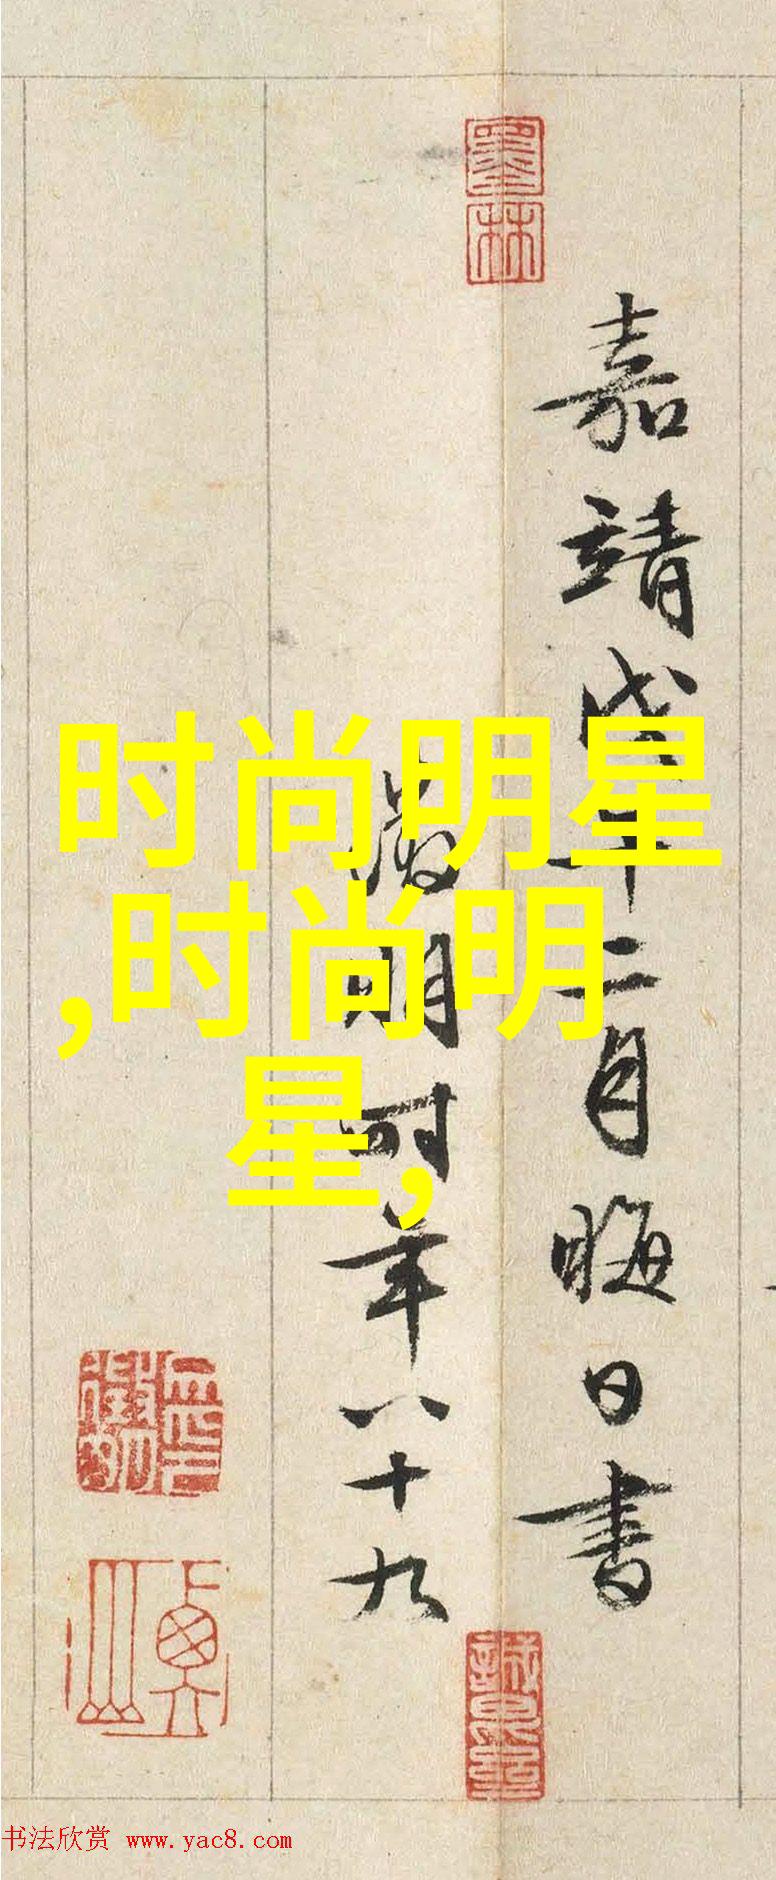 墨林
嘉靖戊午二月晦日書
徵明时年八十九
时尚明星
,时尚明
星,
书法欣赏 www.yac8.com